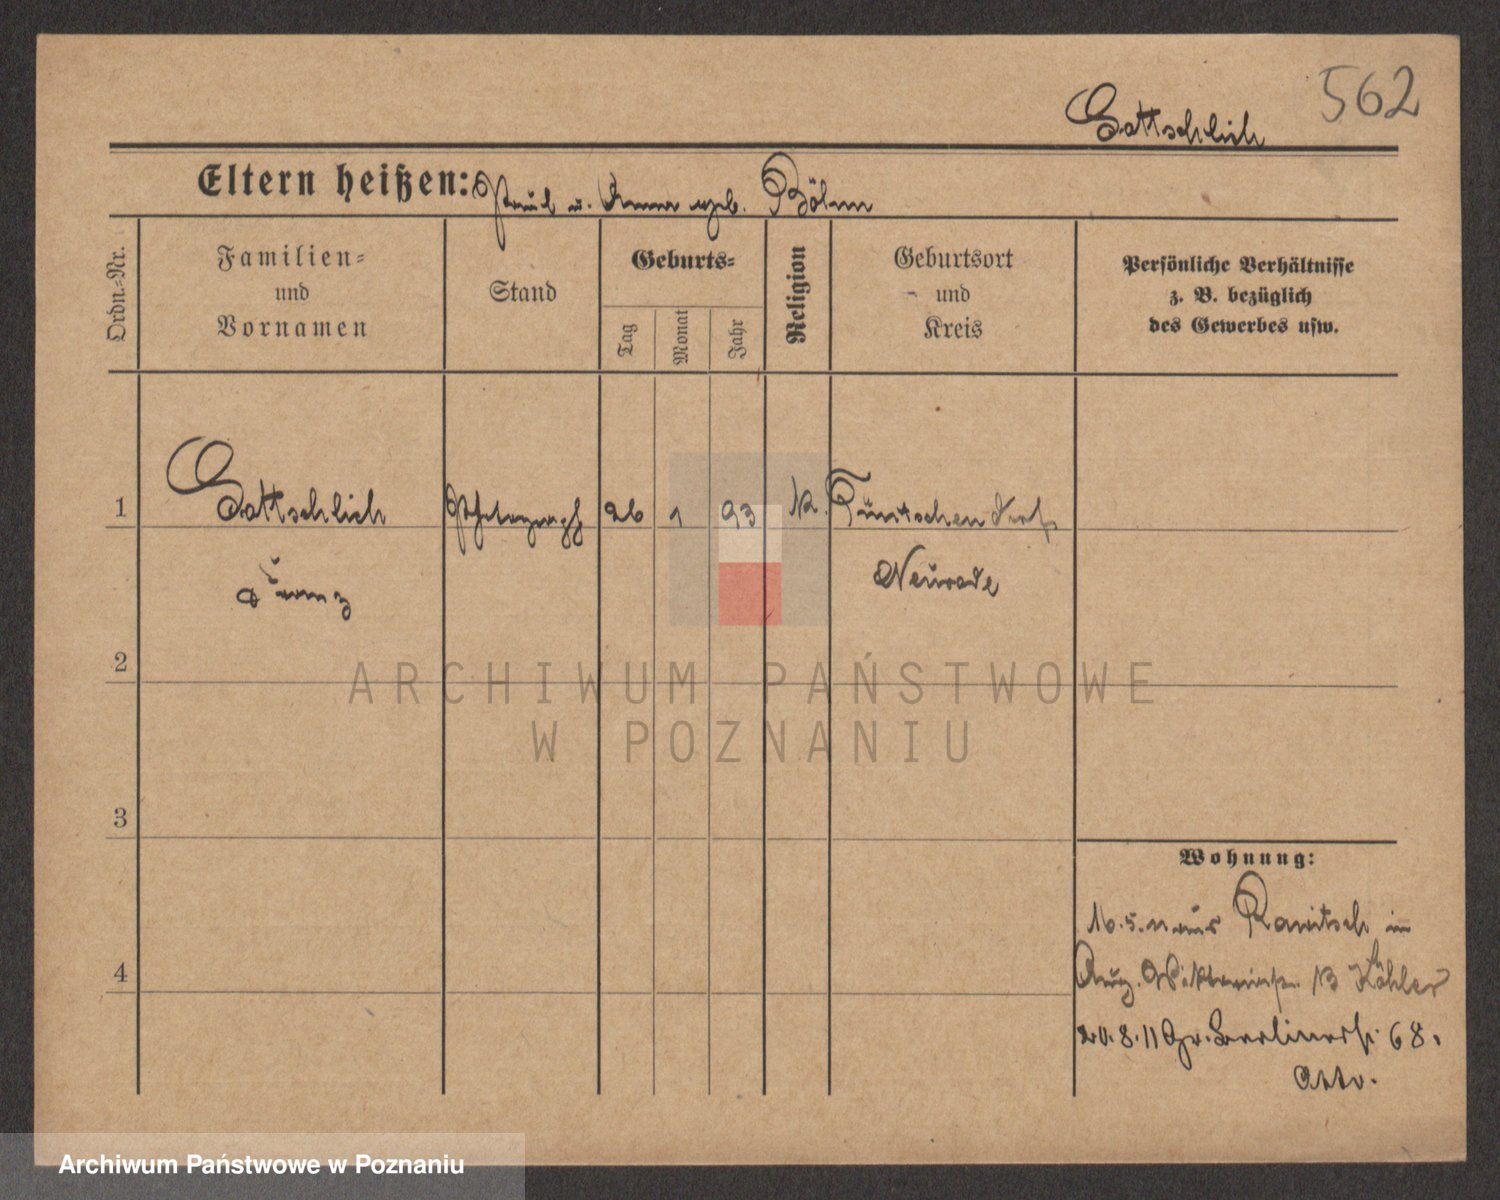 562
Gottschlich
Eltern heißen: Paul u. Anna geb. Böhm
Ordn.=Nr.
Familien=
und
Vornamen
Stand
Geburts=
Tag
Monat
Jahr
Religion
Geburtsort
und
Kreis
Persönliche Verhältnisse
z. B. bezüglich
des Gewerbes usw.
1
Gottschlich
Photograph
26
1
93
K.
Neurode
Franz
2
ARCHIWUM PAŃSTWOWE
W POZNANIU
3
4
Wohnung:
16.5.11 aus Rawitsch in
Aug. Viktoriastr. 13 Köhler
20.8.11 Gr. Berlinerstr. 68.
Otto.
Archiwum Państwowe w Poznaniu